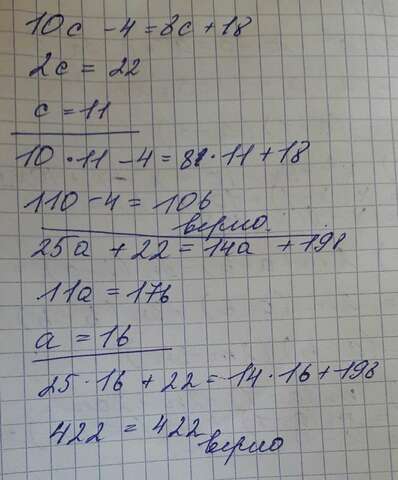 10c - 4 = 8c + 18
2c = 22
c = 11
10 · 11 - 4 = 8 · 11 + 18
110 - 4 = 106
верно.
25a + 22 = 14a + 198
11a = 176
a = 16
25 · 16 + 22 = 14 · 16 + 198
422 = 422 верно